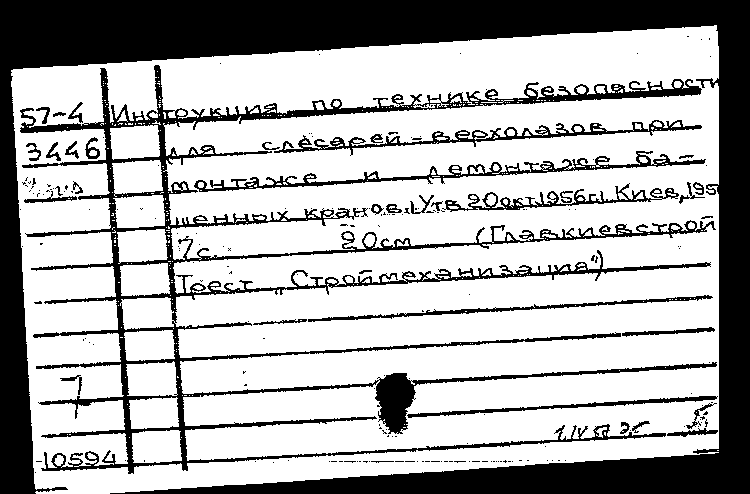 57-4 Инструкция по технике безопасности
3446 для слесарей-верхолазов при
монтаже и демонтаже ба-
шенных кранов. (Утв. 20 окт. 1956 г.) Киев, 195
7 с. 20 см (Главкиевстрой
Трест „Строймеханизация“)
7
1.IV 57
10594